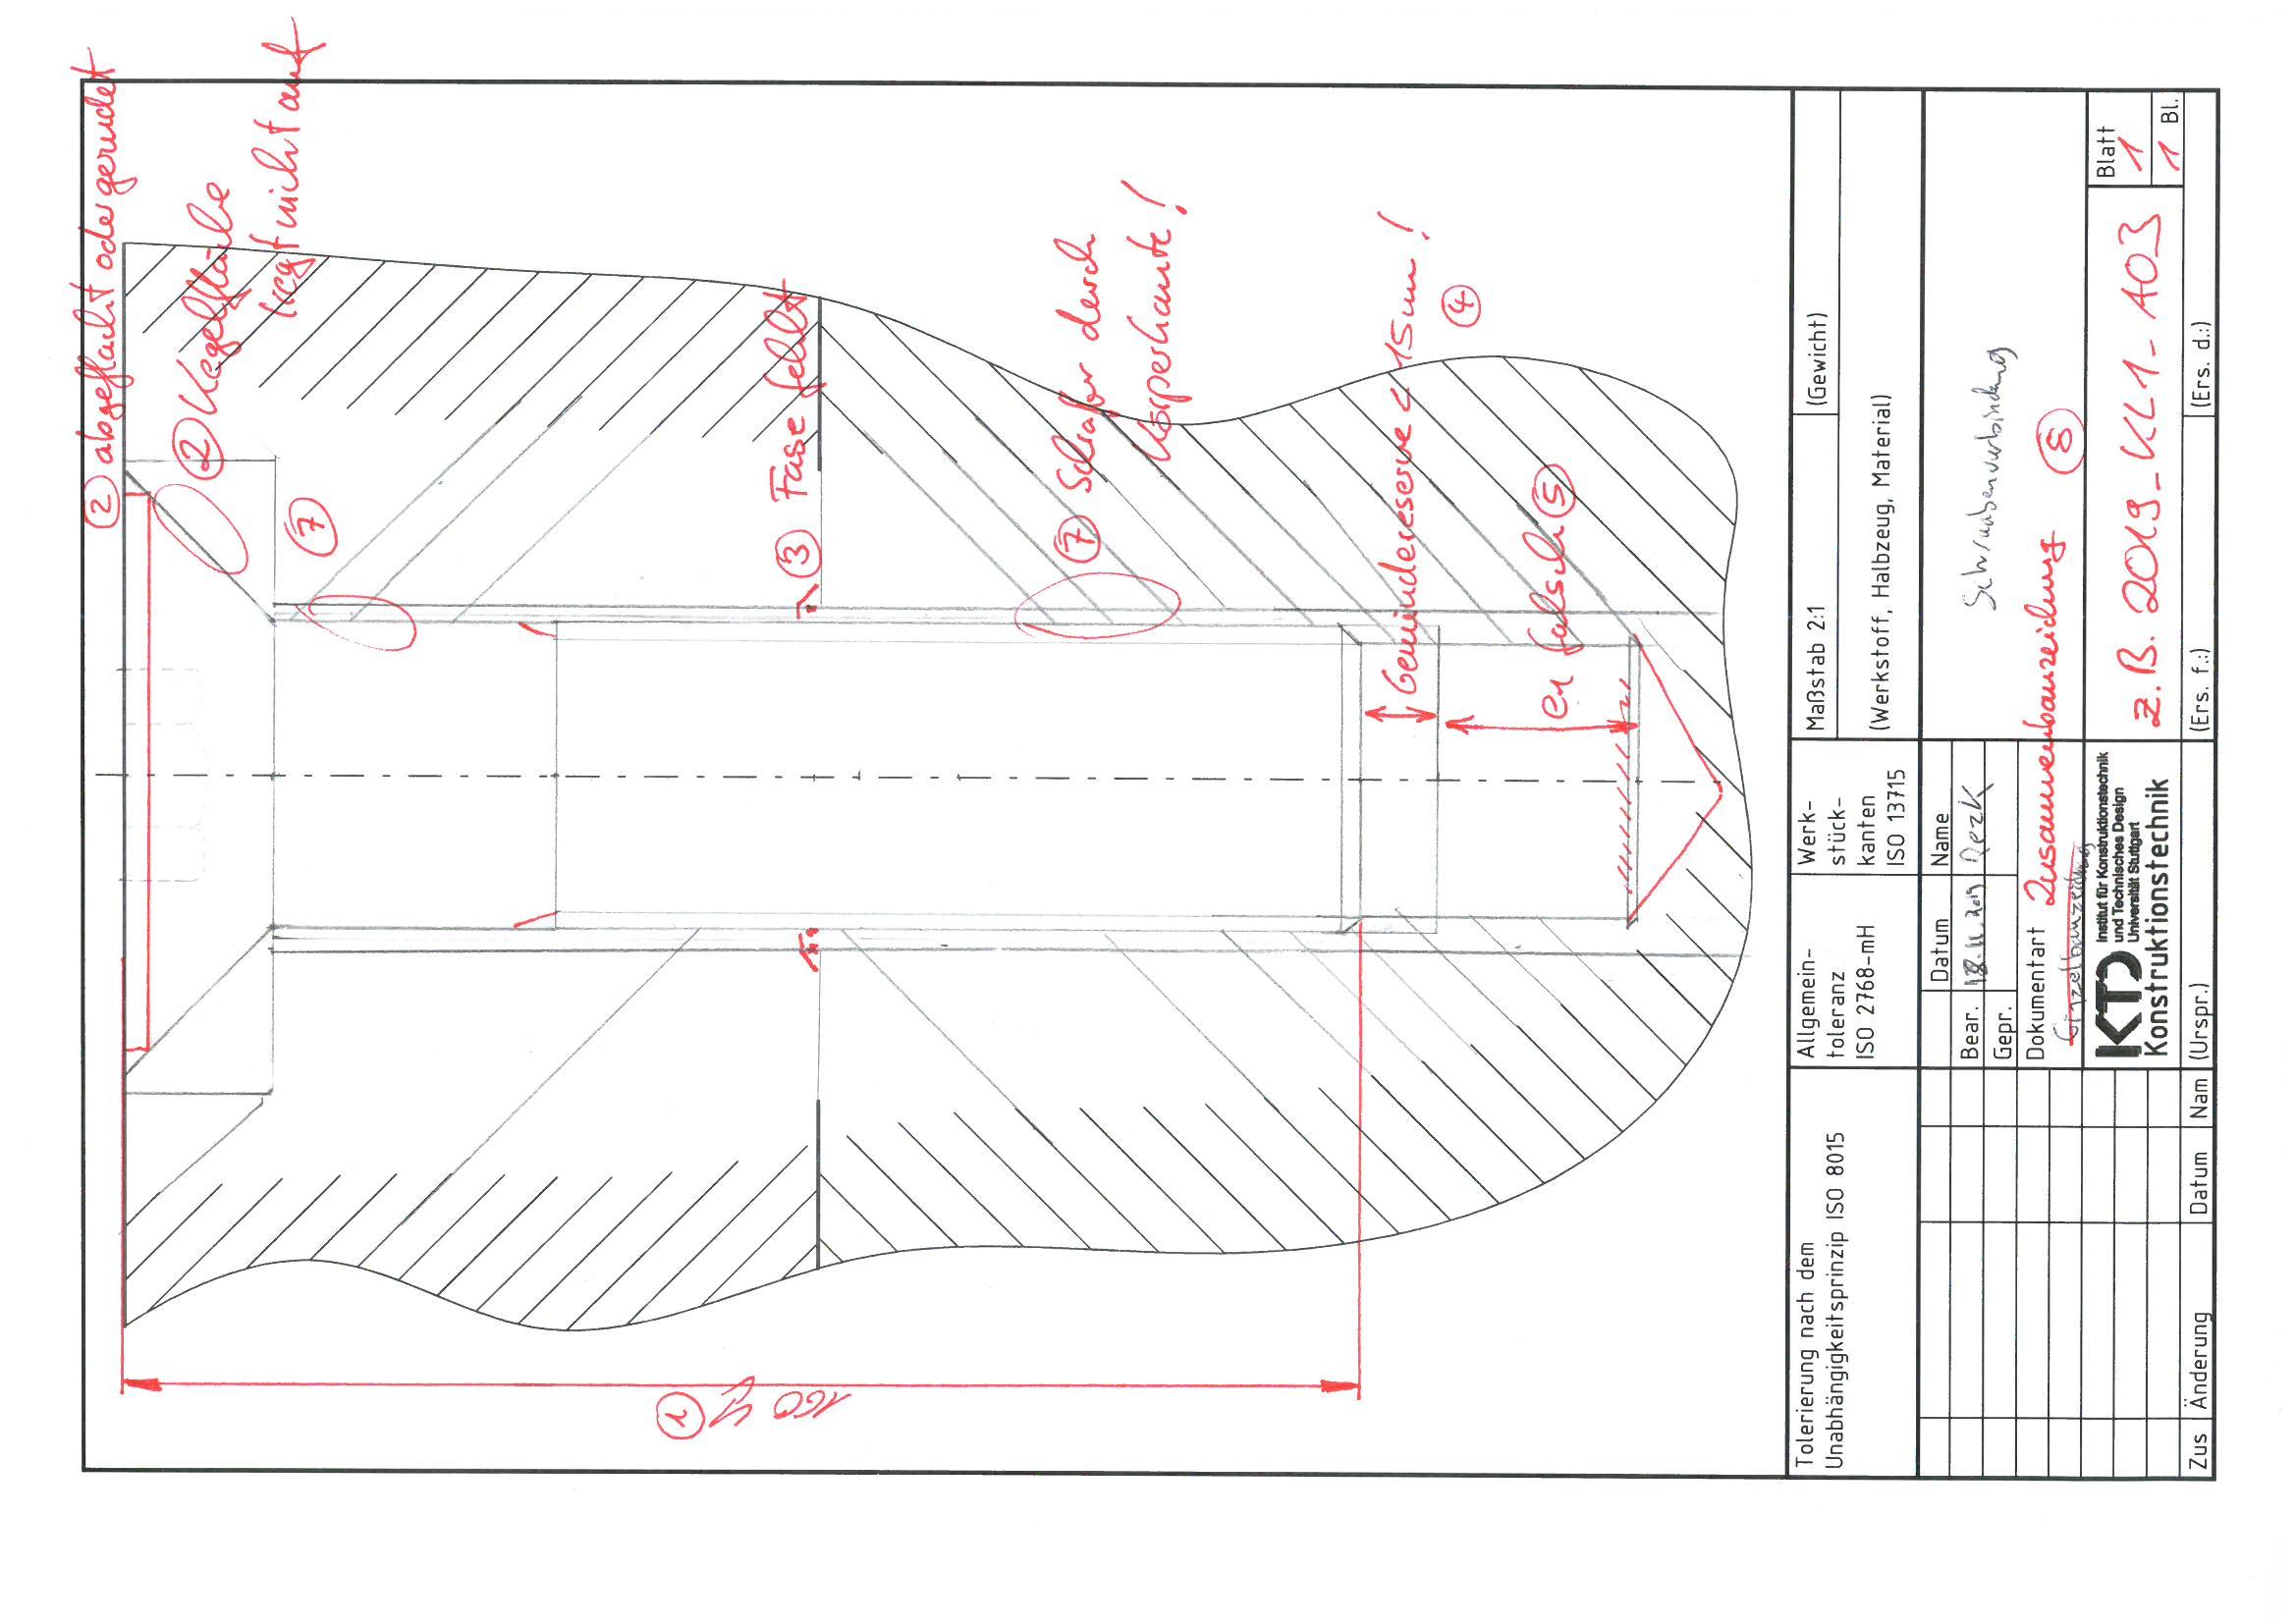 ② abgeflacht oder gerundet
② Kegelfläche
liegt nicht auf
⑦
③ Fase fehlt
⑦ Schraffur durch
Körperkante!
Gewindereserve < 15mm!
④
e1 falsch ⑤
①
160
Tolerierung nach dem
Unabhängigkeitsprinzip ISO 8015
Allgemein-
toleranz
ISO 2768-mH
Werk-
stück-
kanten
ISO 13715
Maßstab 2:1
(Gewicht)
(Werkstoff, Halbzeug, Material)
Datum
Name
Bear.
18.11.2019
Rezk
Gepr.
Schraubenverbindung
Dokumentart
Zusammenbauzeichnung ⑧
Einzelbauzeichnung
KTD
Institut für Konstruktionstechnik
und Technisches Design
Universität Stuttgart
Konstruktionstechnik
z.B. 2019_KL1_A03
Blatt
1
1
Bl.
Zus
Änderung
Datum
Nam
(Urspr.)
(Ers. f.:)
(Ers. d.:)